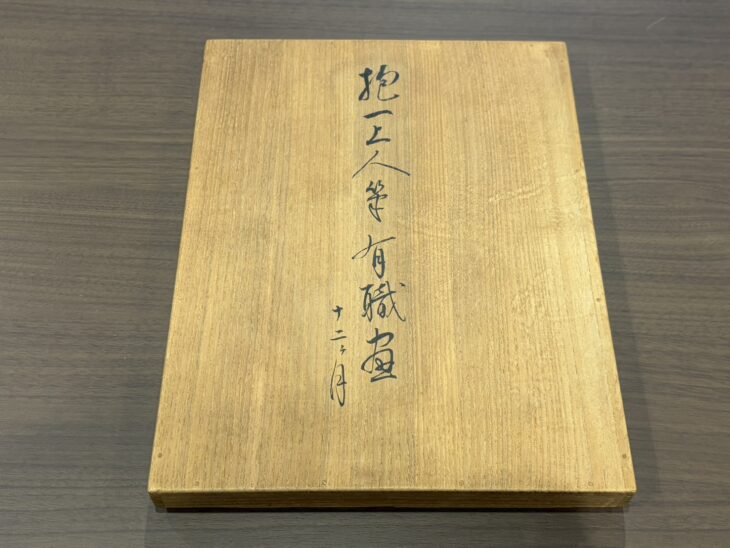 抱一上人筆有職画
十二ヶ月